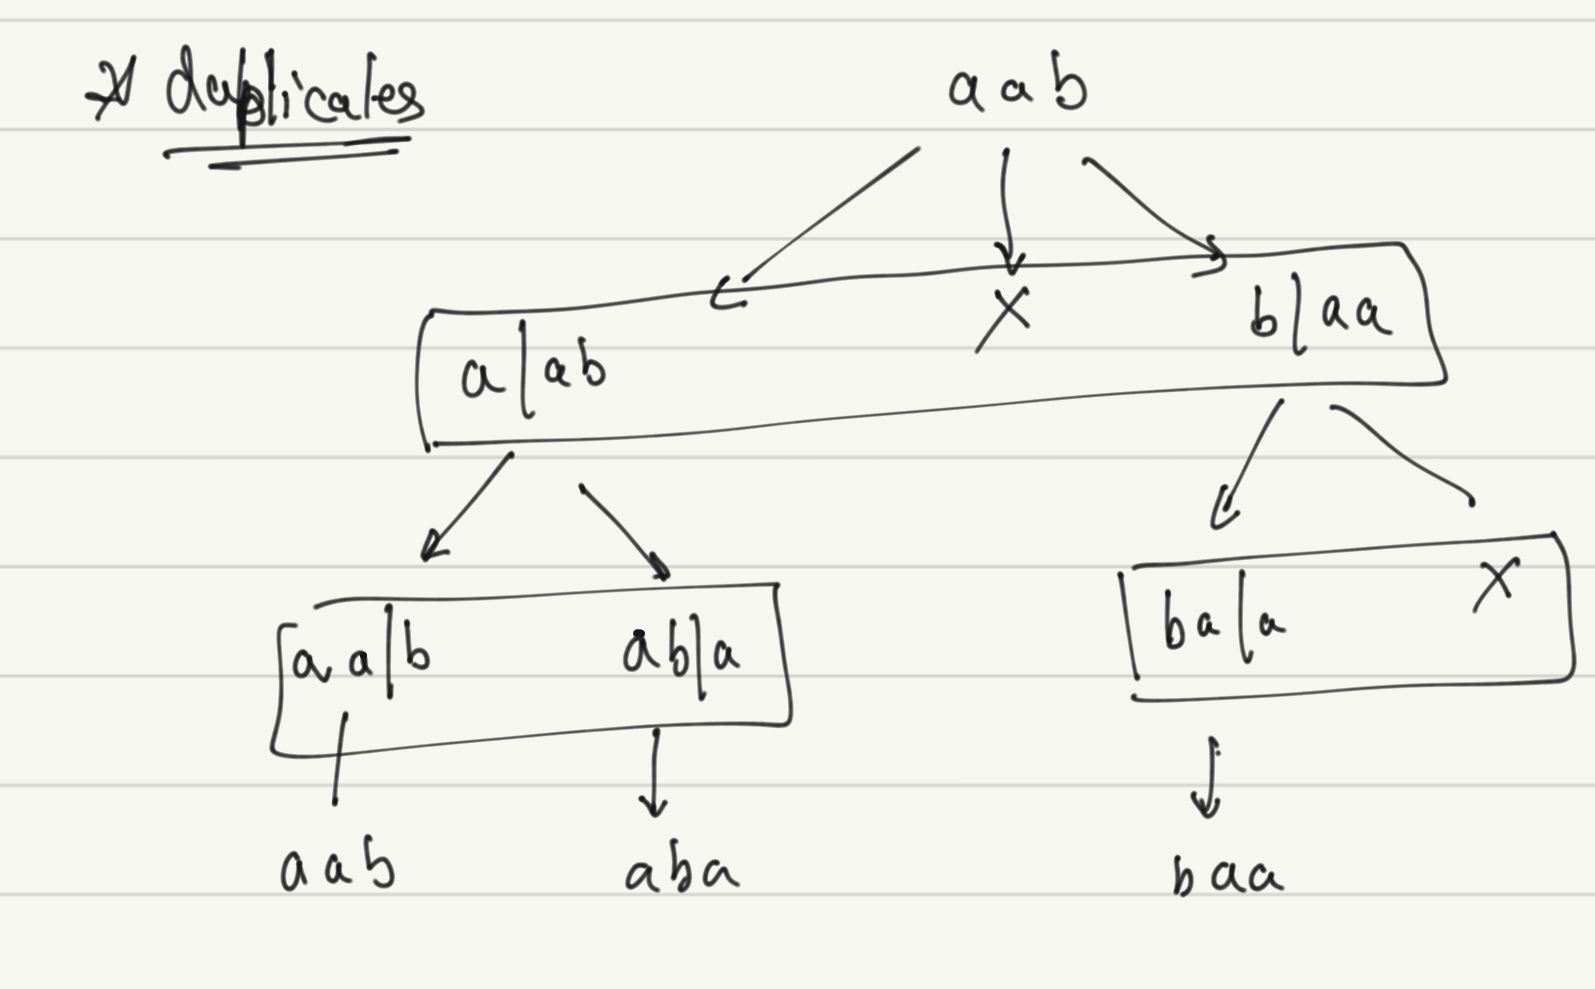 * duplicales
aab
a|ab X b|aa
aa|b ab|a ba|a X
aab aba baa